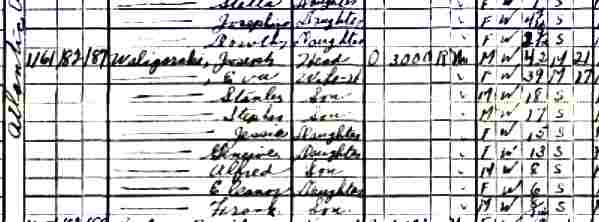 Stella Daughter F W S
Josephine Daughter F W S
Dorothy Daughter F W S
Atlantic
1161 82 87 Waligorski, Joseph Head O 3000 R No M W 42 M 21
—, Eva Wife-H F W 39 M 17
— Stanley Son M W 18 S
— Stephen Son M W 17 S
— Jessie Daughter F W 15 S
— Genevive Daughter F W 13 S
— Alfred Son M W 8 S
— Eleanor Daughter F W 6 S
— Frank Son M W S